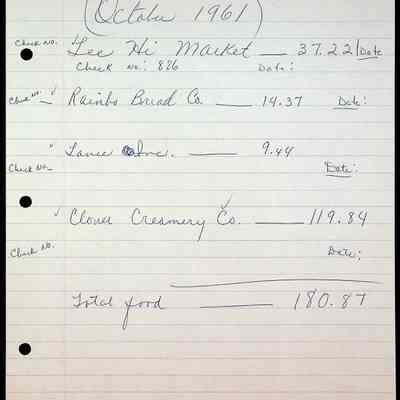 (October 1961)
Check No. Lee Hi Market — 37.22 Date
Check No.: 886 Date:
Check No. Rainbo Bread Co. — 14.37 Date:
" Lance Inc. — 9.44
Check No. Date:
Clover Creamery Co. — 119.84
Check No. Date:
Total food — 180.87